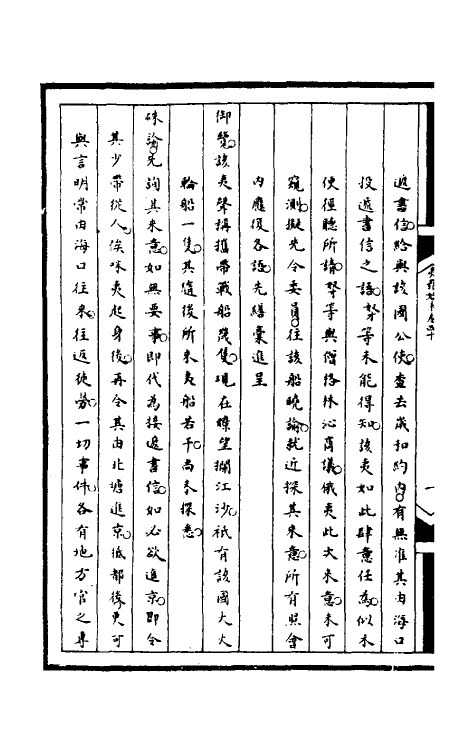 遞書信給與該國公使查去歲和約內有無准其由海口
投遞書信之語。奴才等未能得知該夷如此肆意任為似未
便徑聽所請奴才等與僧格林沁商議俄夷此次來意未可
窺測擬先令委員往該船曉諭就近探其來意所有照會
內應復各語先繕稾進呈
御覽該夷聲稱攜帶戰船幾隻現在瞭望攔江沙祇有該國大火
輪船一隻其隨後所來夷船若干尚未探悉
硃諭先詢其來意如無要事即代為接遞書信如必欲進京即令
其少帶從人俟咪夷起身後再令其由北塘進京抵都後更可
與言明常由海口往來往返徒勞一切事件各有地方官之專